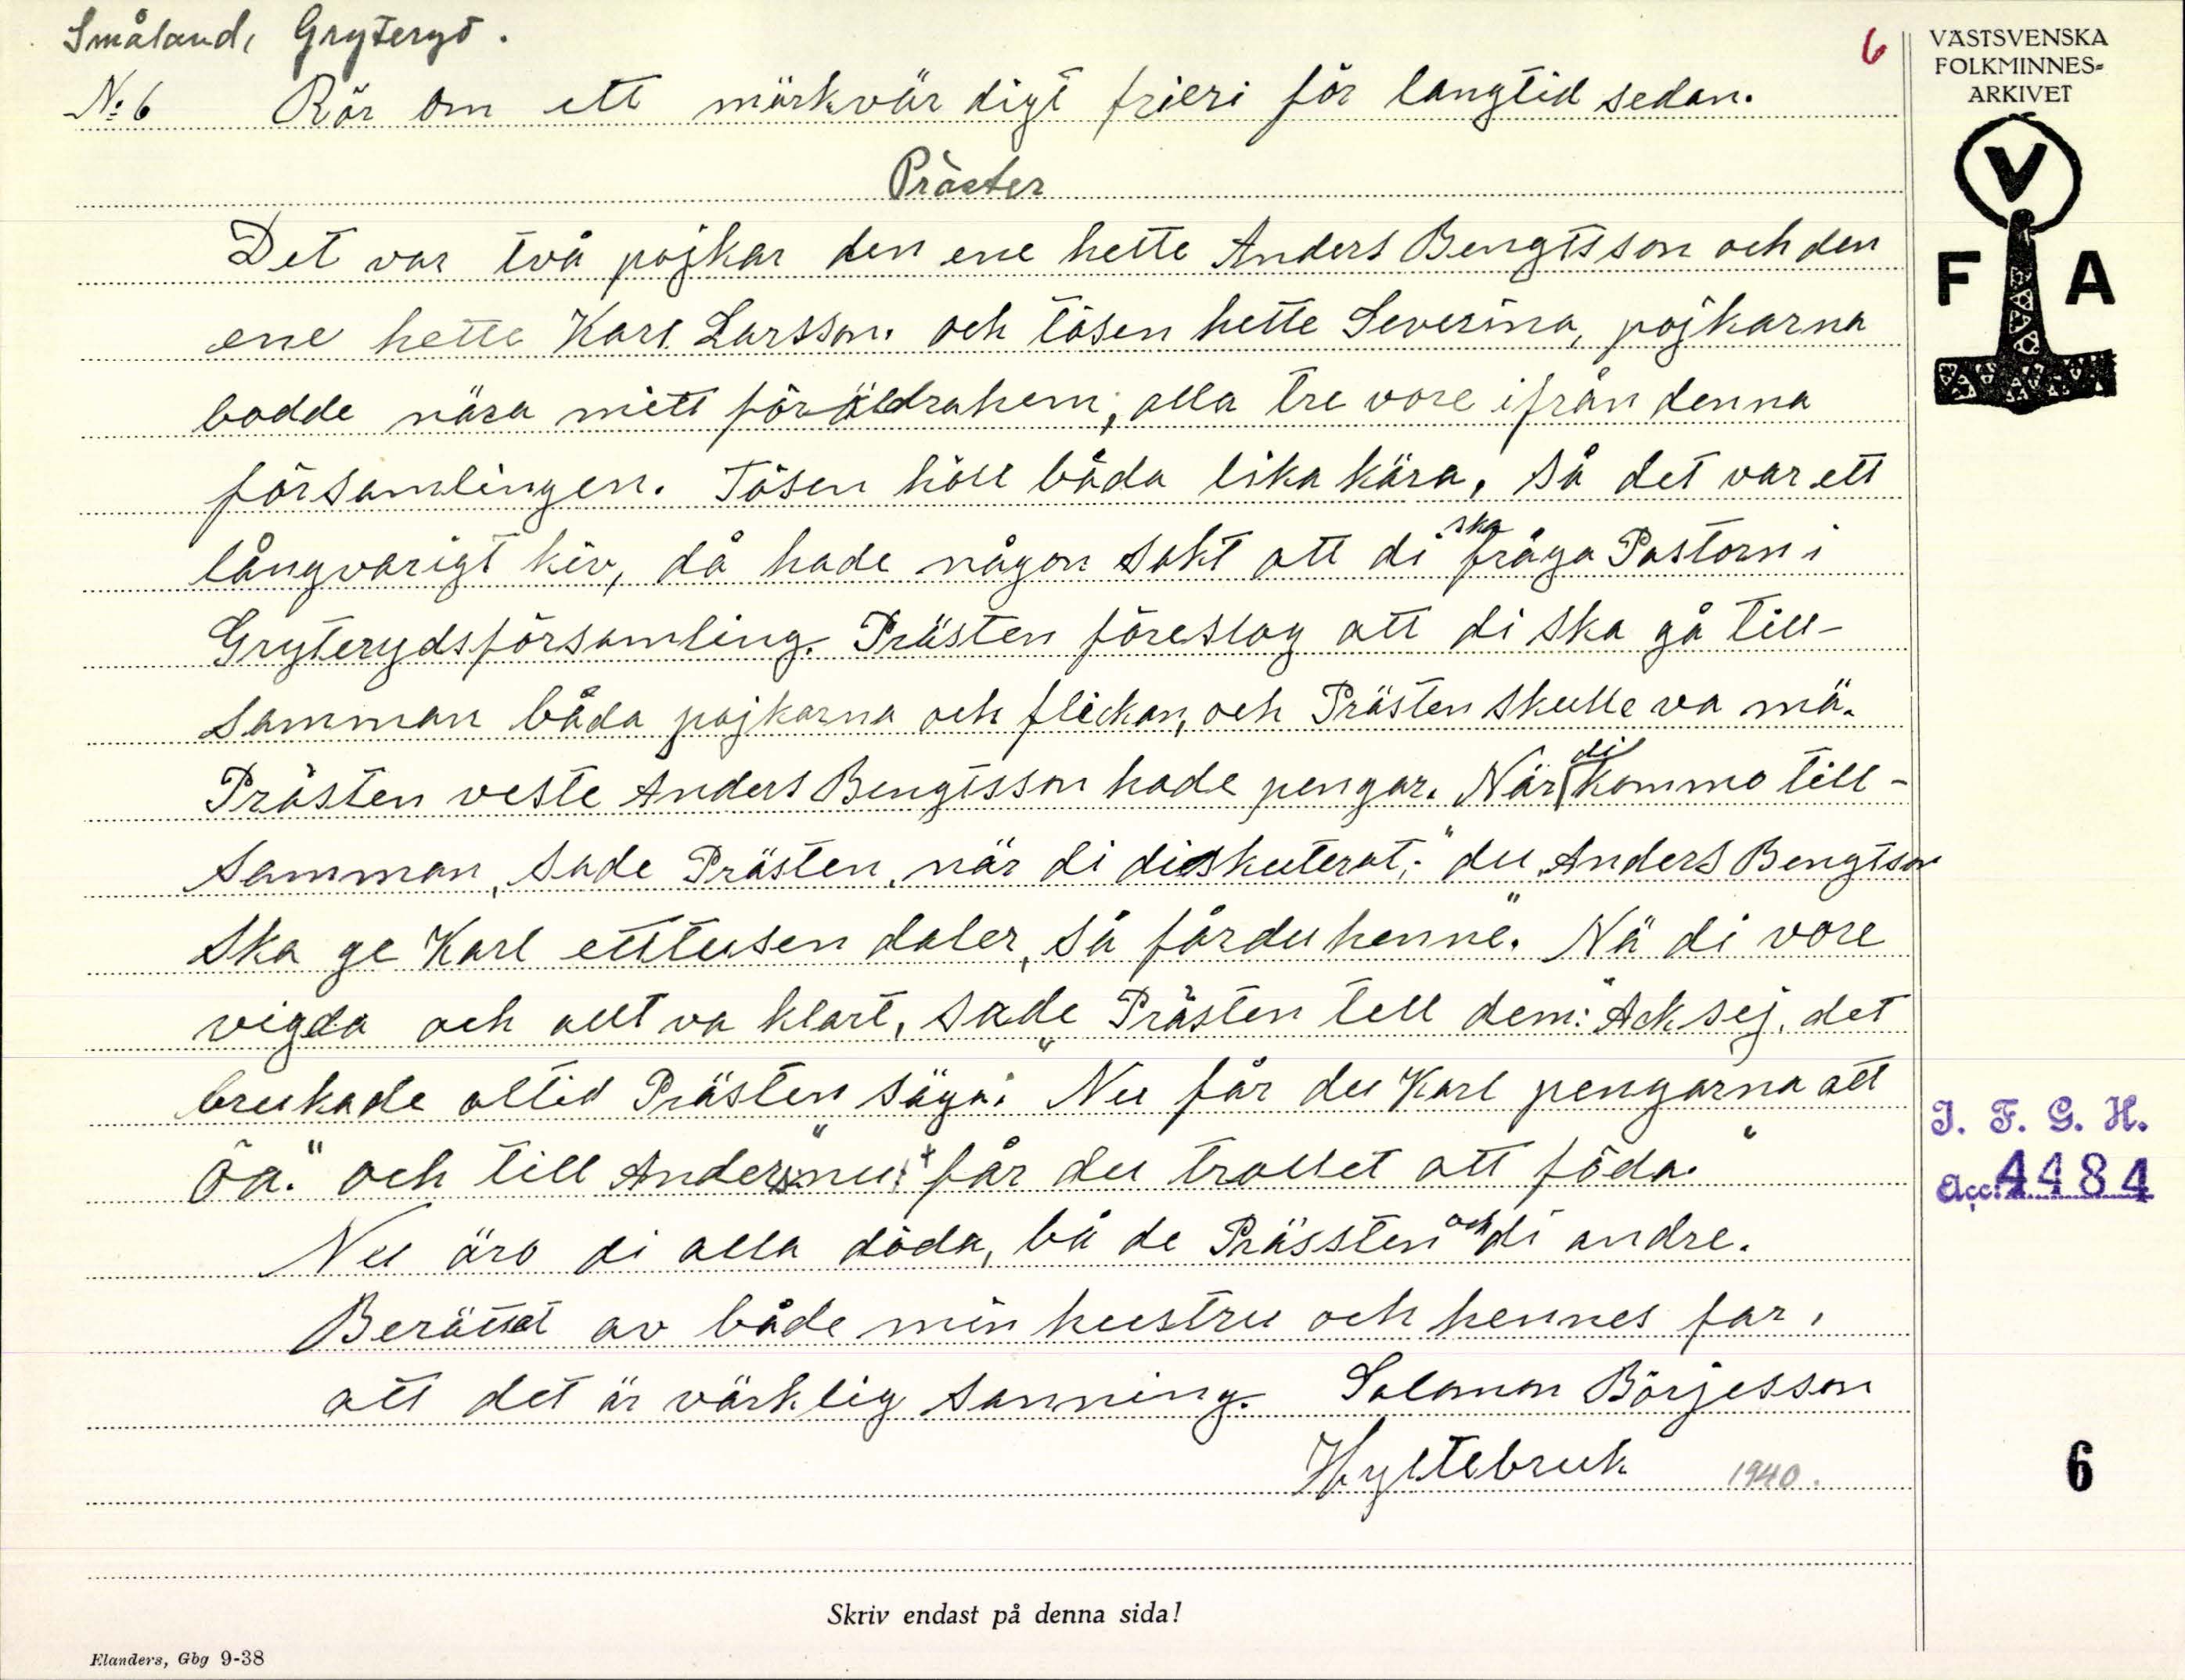 Småland, Gryteryd.
6
VÄSTSVENSKA
FOLKMINNES=
ARKIVET
V
F A
No 6 Rör om ett märkvär digt frieri för langtid sedan.
Präster
Det var två pojkar den ene hette Anders Bengtsson och den
ene hette Karl Larsson. och tösen hette Severina, pojkarna
bodde nära mitt föräldrahem; alla tre vore ifrån denna
församlingen. Tösen höll båda lika kära, så det var ett
långvarigt kiv, då hade någon sakt att di ska fråga Pastorn i
Gryterydsförsamling. Prästen föreslog att di ska gå till-
samman båda pojkarna och flickan, och Prästen skulle va mä.
Prästen veste Anders Bengtsson hade pengar. När di kommo till-
samman, sade Prästen, när di diskuterat; "du Anders Bengtson
ska ge Karl etttusen daler, så fårdu henne". Nä di vore
vigda och allt va klart, sade Prästen tell dem: "Ack sej, det
brukade alltid Prästen säga: "Nu får du Karl pengarna att
öa." och till Anders "nu får du trollet att föda."
Nu äro di alla döda, bå de Prässten och di andre.
Berättat av både min hustru och hennes far,
att det är värklig sanning. Salomon Börjesson
Hyltebruk 1940.
I. F. G. H.
Acc. 4484
6
Skriv endast på denna sida!
Elanders, Gbg 9-38